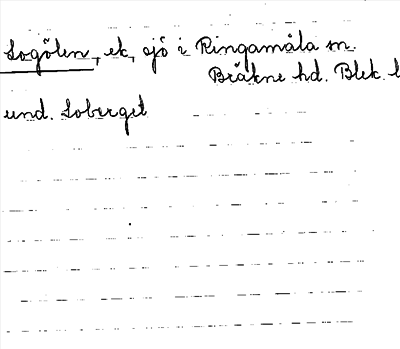 Sogölen, ek, sjö i Ringamåla sn.
Bräkne hd. Blek. l
und. Soberget